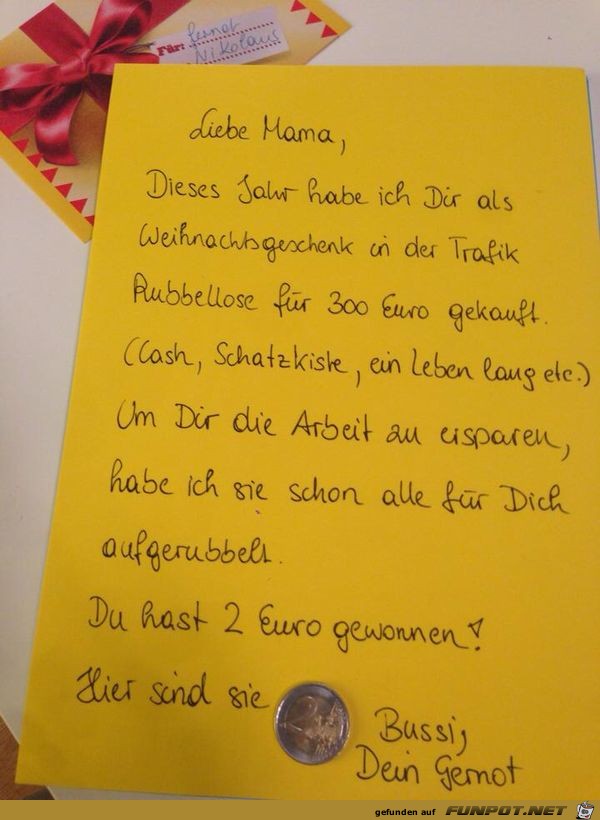 Für: Gernot
Nikolaus
Liebe Mama,
Dieses Jahr habe ich Dir als
Weihnachtsgeschenk in der Trafik
Rubbellose für 300 Euro gekauft.
(Cash, Schatzkiste, ein Leben lang etc.)
Um Dir die Arbeit zu ersparen,
habe ich sie schon alle für Dich
aufgerubbelt.
Du hast 2 Euro gewonnen!
Hier sind sie
2
Bussi,
Dein Gernot
gefunden auf FUNPOT.NET